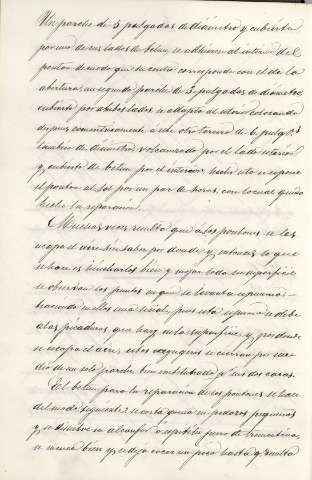 Un parche de 5 pulgadas de diámetro y cubierto
por uno de sus lados de betun se adhiere al interior del
ponton de modo que su centro corresponda con el de la
abertura; un segundo parche de 3 pulgadas de diámetro
cubierto por ambos lados se adapta al exterior colocando
despues concentricamente a este otro tercero de 6 pulg.s
tambien de diámetro volcanizado por el lado exterior
y cubierto de betun por el interior: hecho esto se expone
el ponton al sol por un par de horas, con lo cual queda
hecha la reparacion.
Muchas veces resulta que a los pontones se les
escapa el aire sin saber por donde y entonces lo que
se hace es hincharlos bien y mojar toda su superficie
se observan los puntos en que se levanta espuma
haciendo en ellos una señal, pues esta espuma se debe
a las picaduras que hay en la superficie y por donde
se escapa el aire, estos agugeros se cierran por me-
dio de un solo parche, bien embetunado por sus dos caras.
El betun para la reparacion de los pontones se hace
del modo siguiente: se corta goma en pedazos pequeños
y se disuelve en alcanfor o espiritu puro de trementina,
se menea bien y se deja en un poco hasta que resulta